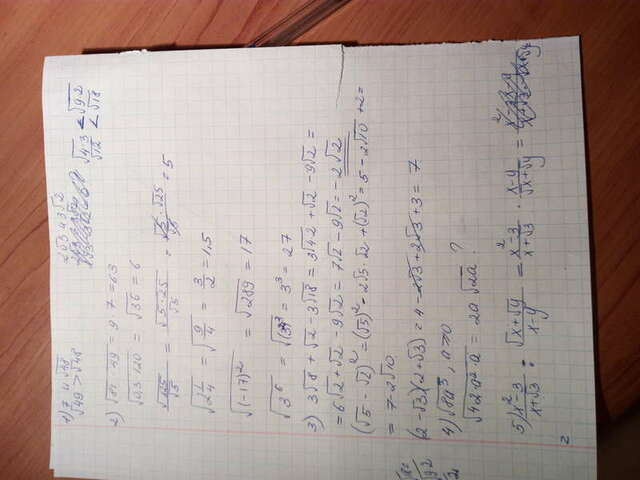 1) 7 и √48
√49 > √48
2√3 < 3√2
√4·3 < √9·2
√12 < √18
2) √81·49 = 9·7 = 63
√0,3·120 = √36 = 6
= √5·25/√5 = √5·√25/√5 = 5
√2 1/4 = √9/4 = 3/2 = 1.5
√(-17)² = √289 = 17
√3⁶ = √(3³)² = 3³ = 27
3) 3√8 + √2 - 3√18 = 3√4·2 + √2 - 9√2 =
= 6√2 + √2 - 9√2 = 7√2 - 9√2 = -2√2
(√5 - √2)² = (√5)² - 2√5·√2 + (√2)² = 5 - 2√10 + 2 =
= 7 - 2√10
(2 - √3)(2 + √3) = 4 - 2√3 + 2√3 + 3 = 7
4) √8a³, a ≥ 0
√4·2·a²·a = 2a√2a ?
5) x² - 3/x + √3 : √x + √y/x - y = x² - 3/x + √3 · x - y/√x + √y =